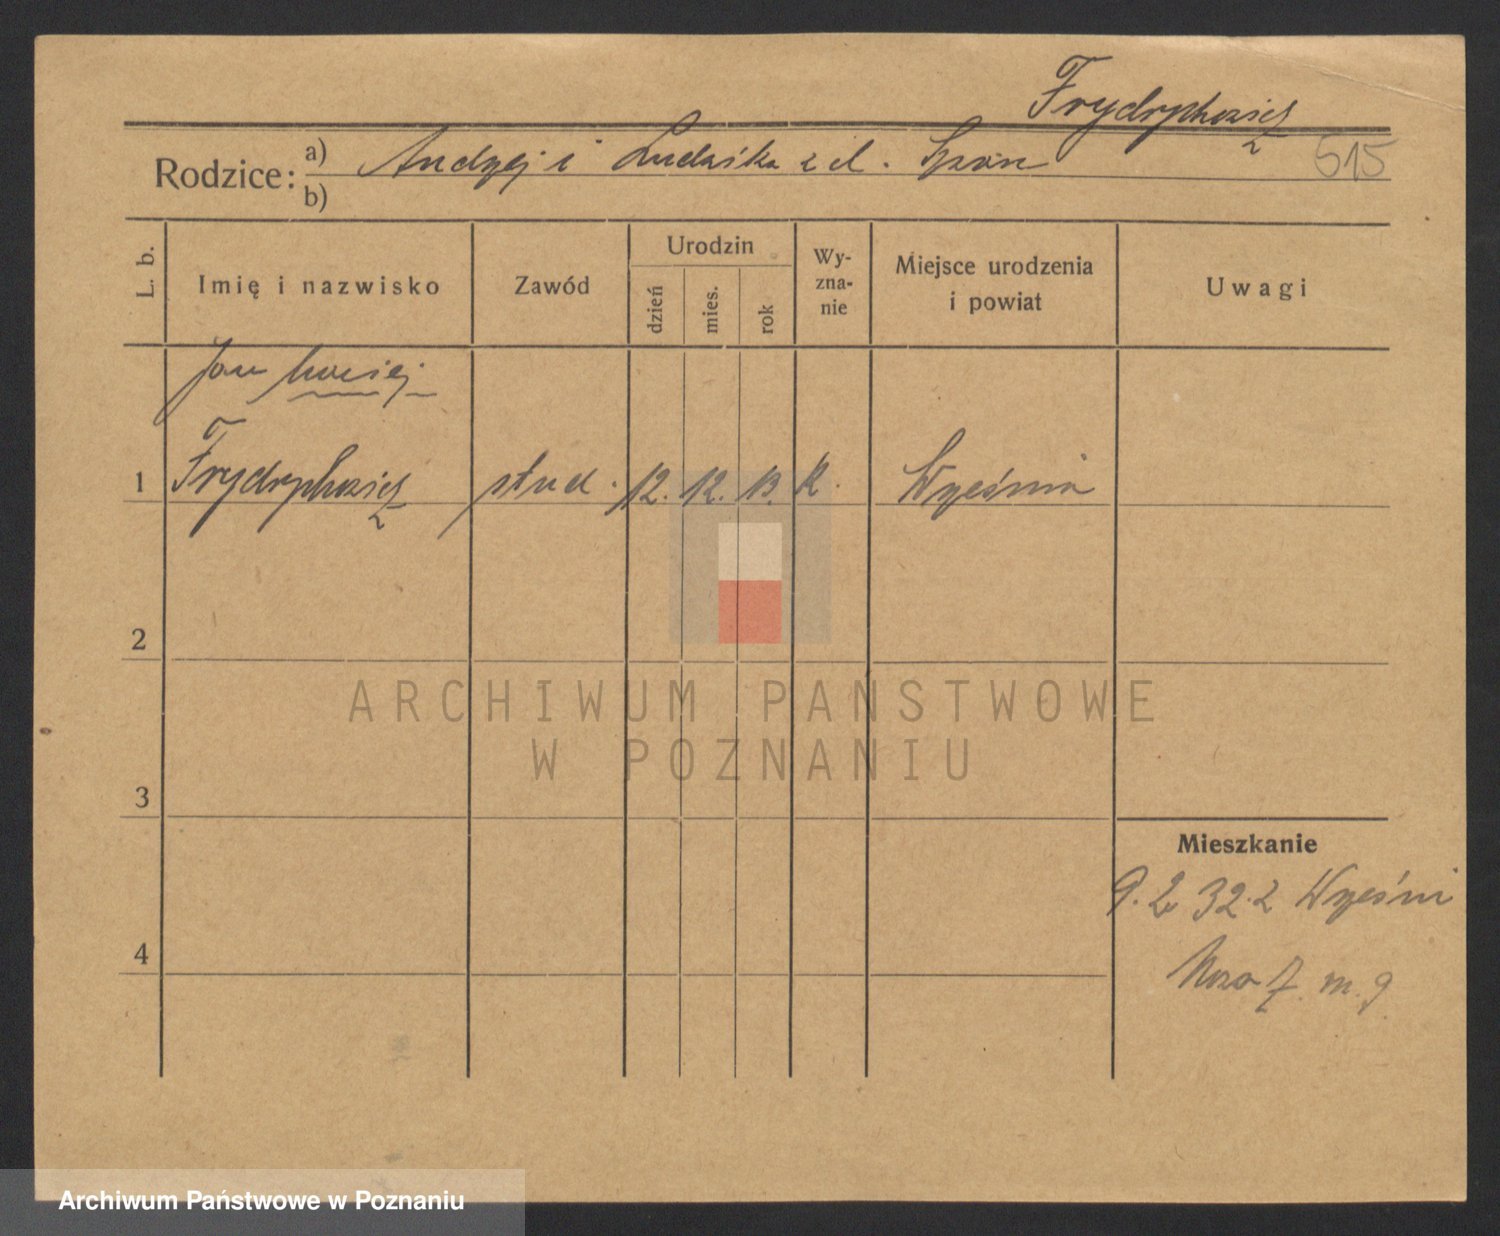 Frydrychowicz
515
Rodzice:
a) Andrzej i Ludwika z d.
b)
L. b.
Imię i nazwisko
Zawód
Urodzin
dzień
mies.
rok
Wy-
zna-
nie
Miejsce urodzenia
i powiat
Uwagi
Jan Maciej
1 Frydrychowicz stud. 12. 12. 13. k. Września
2
ARCHIWUM PAŃSTWOWE
W POZNANIU
3
Mieszkanie
9. 2. 32. z Wrześni
4
7. m. 9
Archiwum Państwowe w Poznaniu